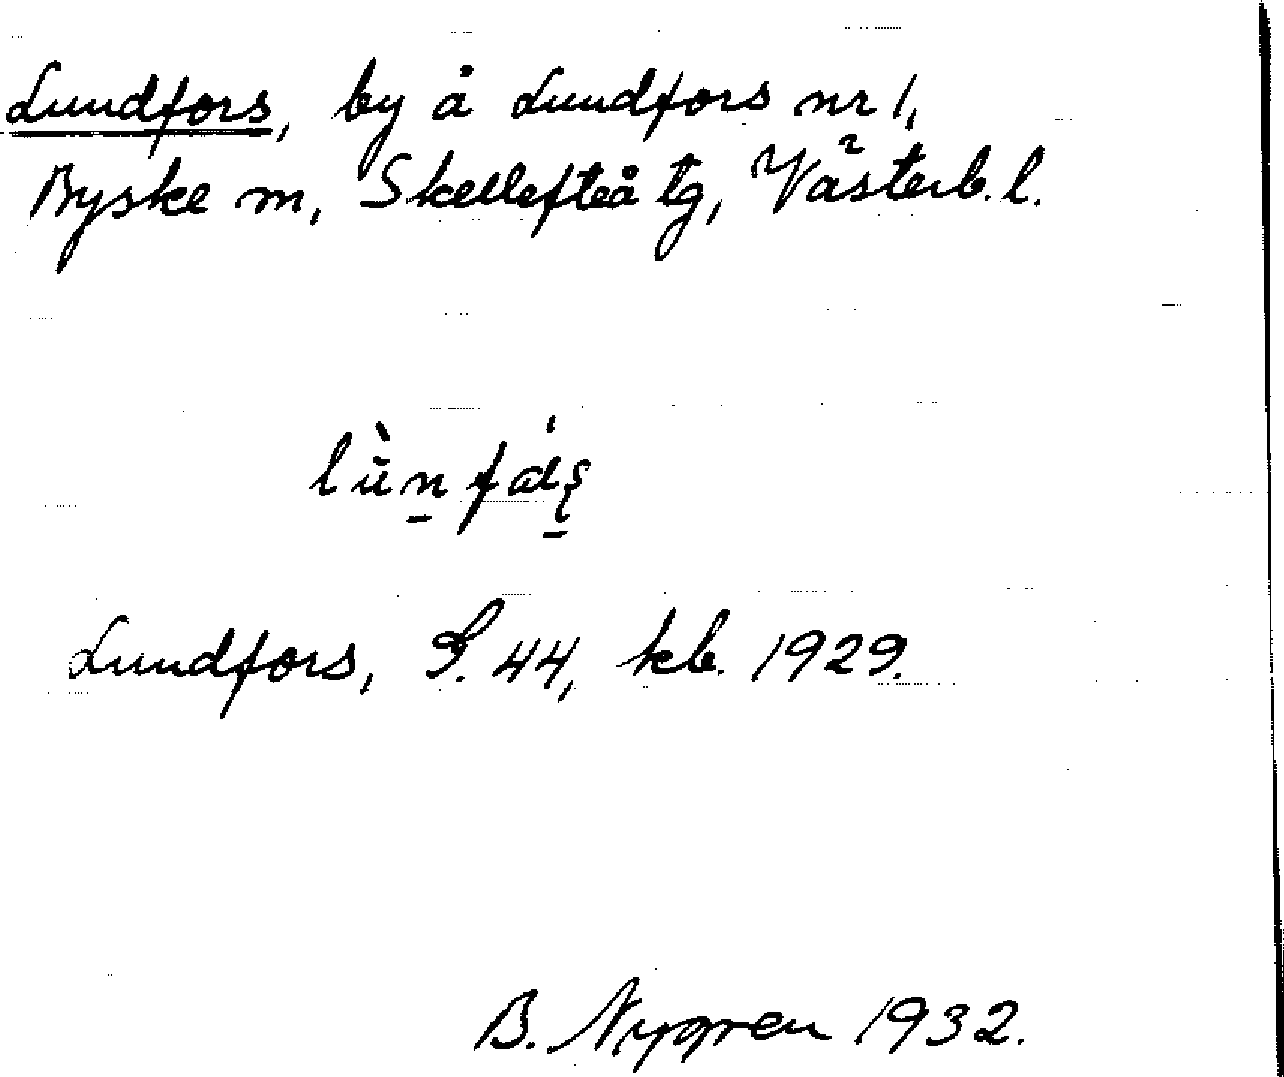 Lundfors, by å Lundfors nr 1,
Byske sn, Skellefteå tg, Västerb. l.
Lundfors, S. 44, kb. 1929.
B. Nygren 1932.